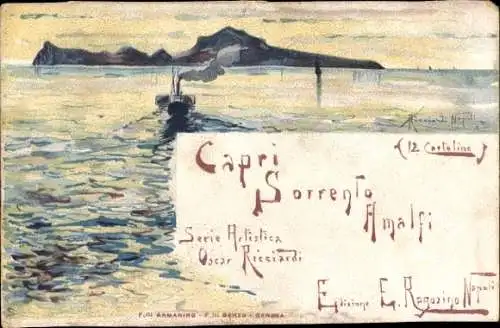 Ricciardi Napoli
(12 Cartoline)
Capri
Sorrento
Amalfi
Serie Artistica
Oscar Ricciardi
Edizione E. Ragozino Napoli
F.lli ARMANINO - F. DI GENOVA